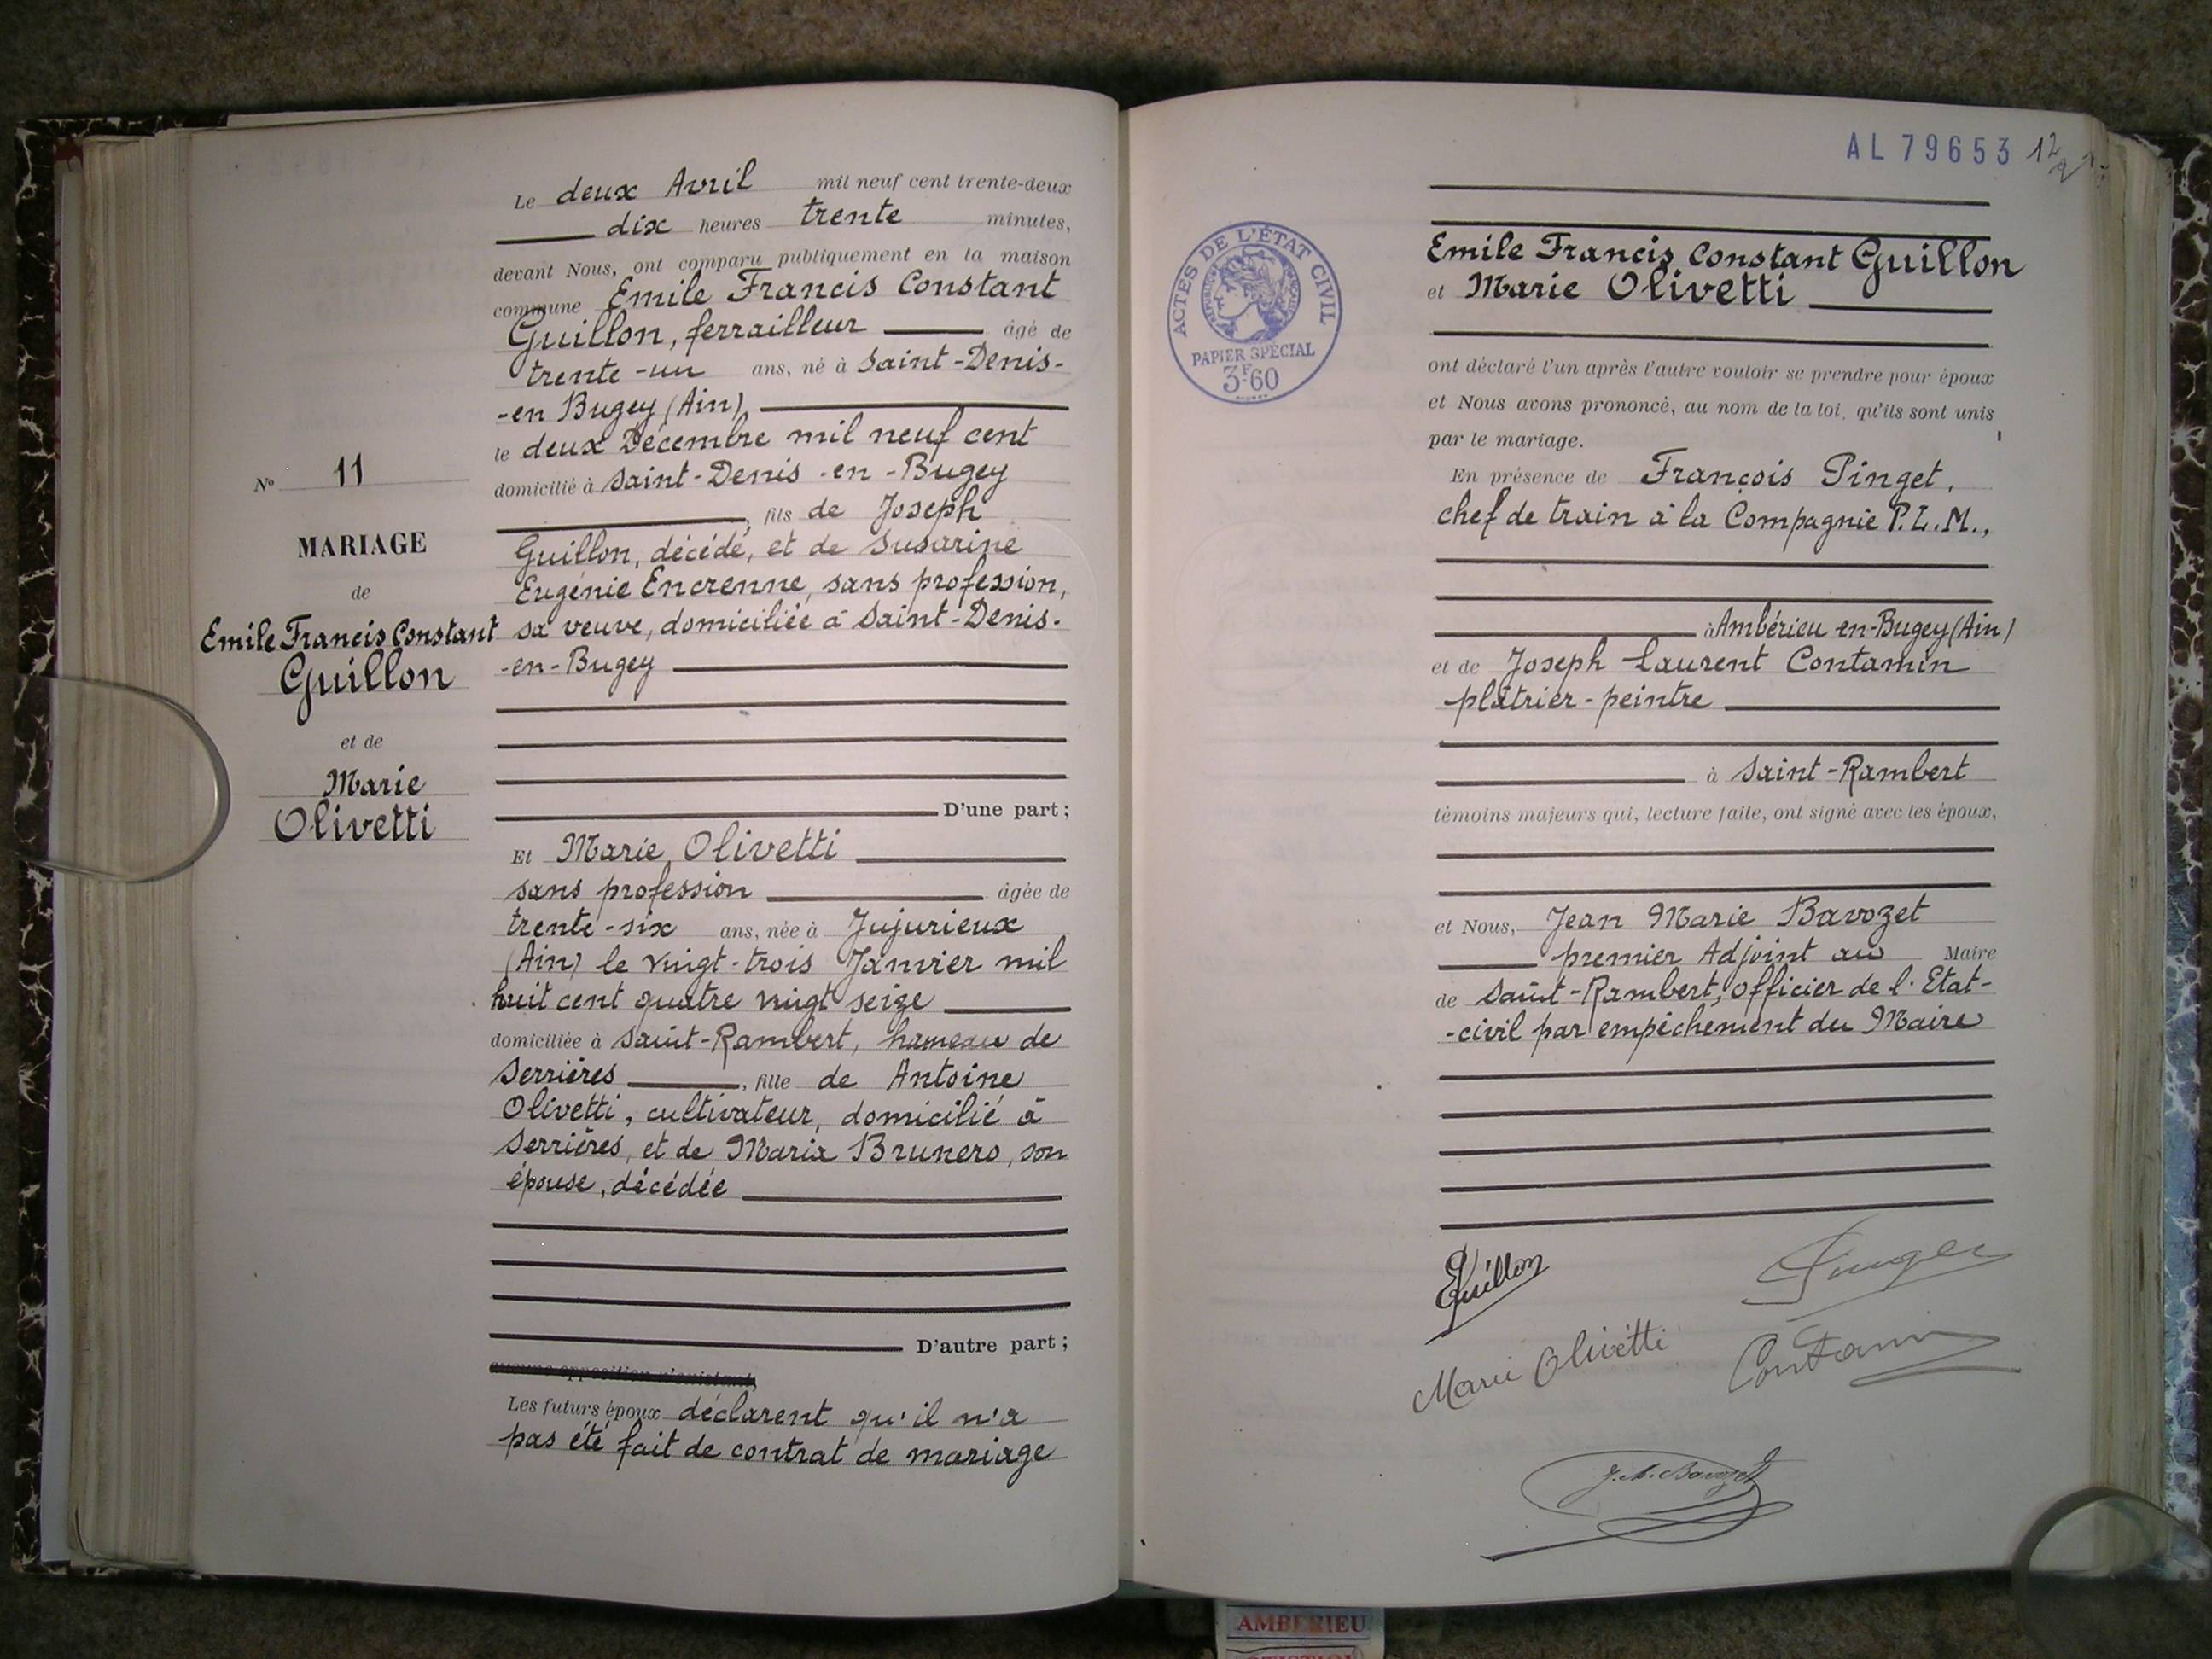 Le deux Avril mil neuf cent trente-deux
dix heures trente minutes,
devant Nous, ont comparu publiquement en la maison
commune Emile Francis Constant
Guillon, ferrailleur âgé de
trente-un ans, né à Saint-Denis-
-en Bugey (Ain)
le deux Décembre mil neuf cent
domicilié à Saint-Denis-en-Bugey
, fils de Joseph
Guillon, décédé, et de Susarine
Eugénie Encrenne, sans profession,
sa veuve, domiciliée à Saint-Denis-
-en-Bugey
D'une part;
Et Marie Olivetti
sans profession âgée de
trente-six ans, née à Jujurieux
(Ain) le vingt-trois Janvier mil
huit cent quatre vingt seize
domiciliée à Saint-Rambert, hameau de
Serrières, fille de Antoine
Olivetti, cultivateur, domicilié à
Serrières, et de Maria Brunero, son
épouse, décédée
D'autre part;
aucune opposition n'existant,
Les futurs époux déclarent qu'il n'a
pas été fait de contrat de mariage
N° 11
MARIAGE
de
Emile Francis Constant
Guillon
et de
Marie
Olivetti
AL 79653 12
ACTES DE L'ÉTAT CIVIL
RÉPUBLIQUE FRANÇAISE
PAPIER SPÉCIAL
3F.60
Emile Francis Constant Guillon
et Marie Olivetti
ont déclaré l'un après l'autre vouloir se prendre pour époux
et Nous avons prononcé, au nom de la loi, qu'ils sont unis
par le mariage.
En présence de François Pinget,
chef de train à la Compagnie P.L.M.,
à Ambérieu-en-Bugey (Ain)
et de Joseph Laurent Contamin
plâtrier-peintre
à Saint-Rambert
témoins majeurs qui, lecture faite, ont signé avec les époux,
et Nous, Jean Marie Bavozet
premier Adjoint au Maire
de Saint-Rambert, officier de l'Etat-
-civil par empêchement du Maire
Guillon
Pinget
Marie Olivetti
Contamin
J. M. Bavozet
AMBERIEU